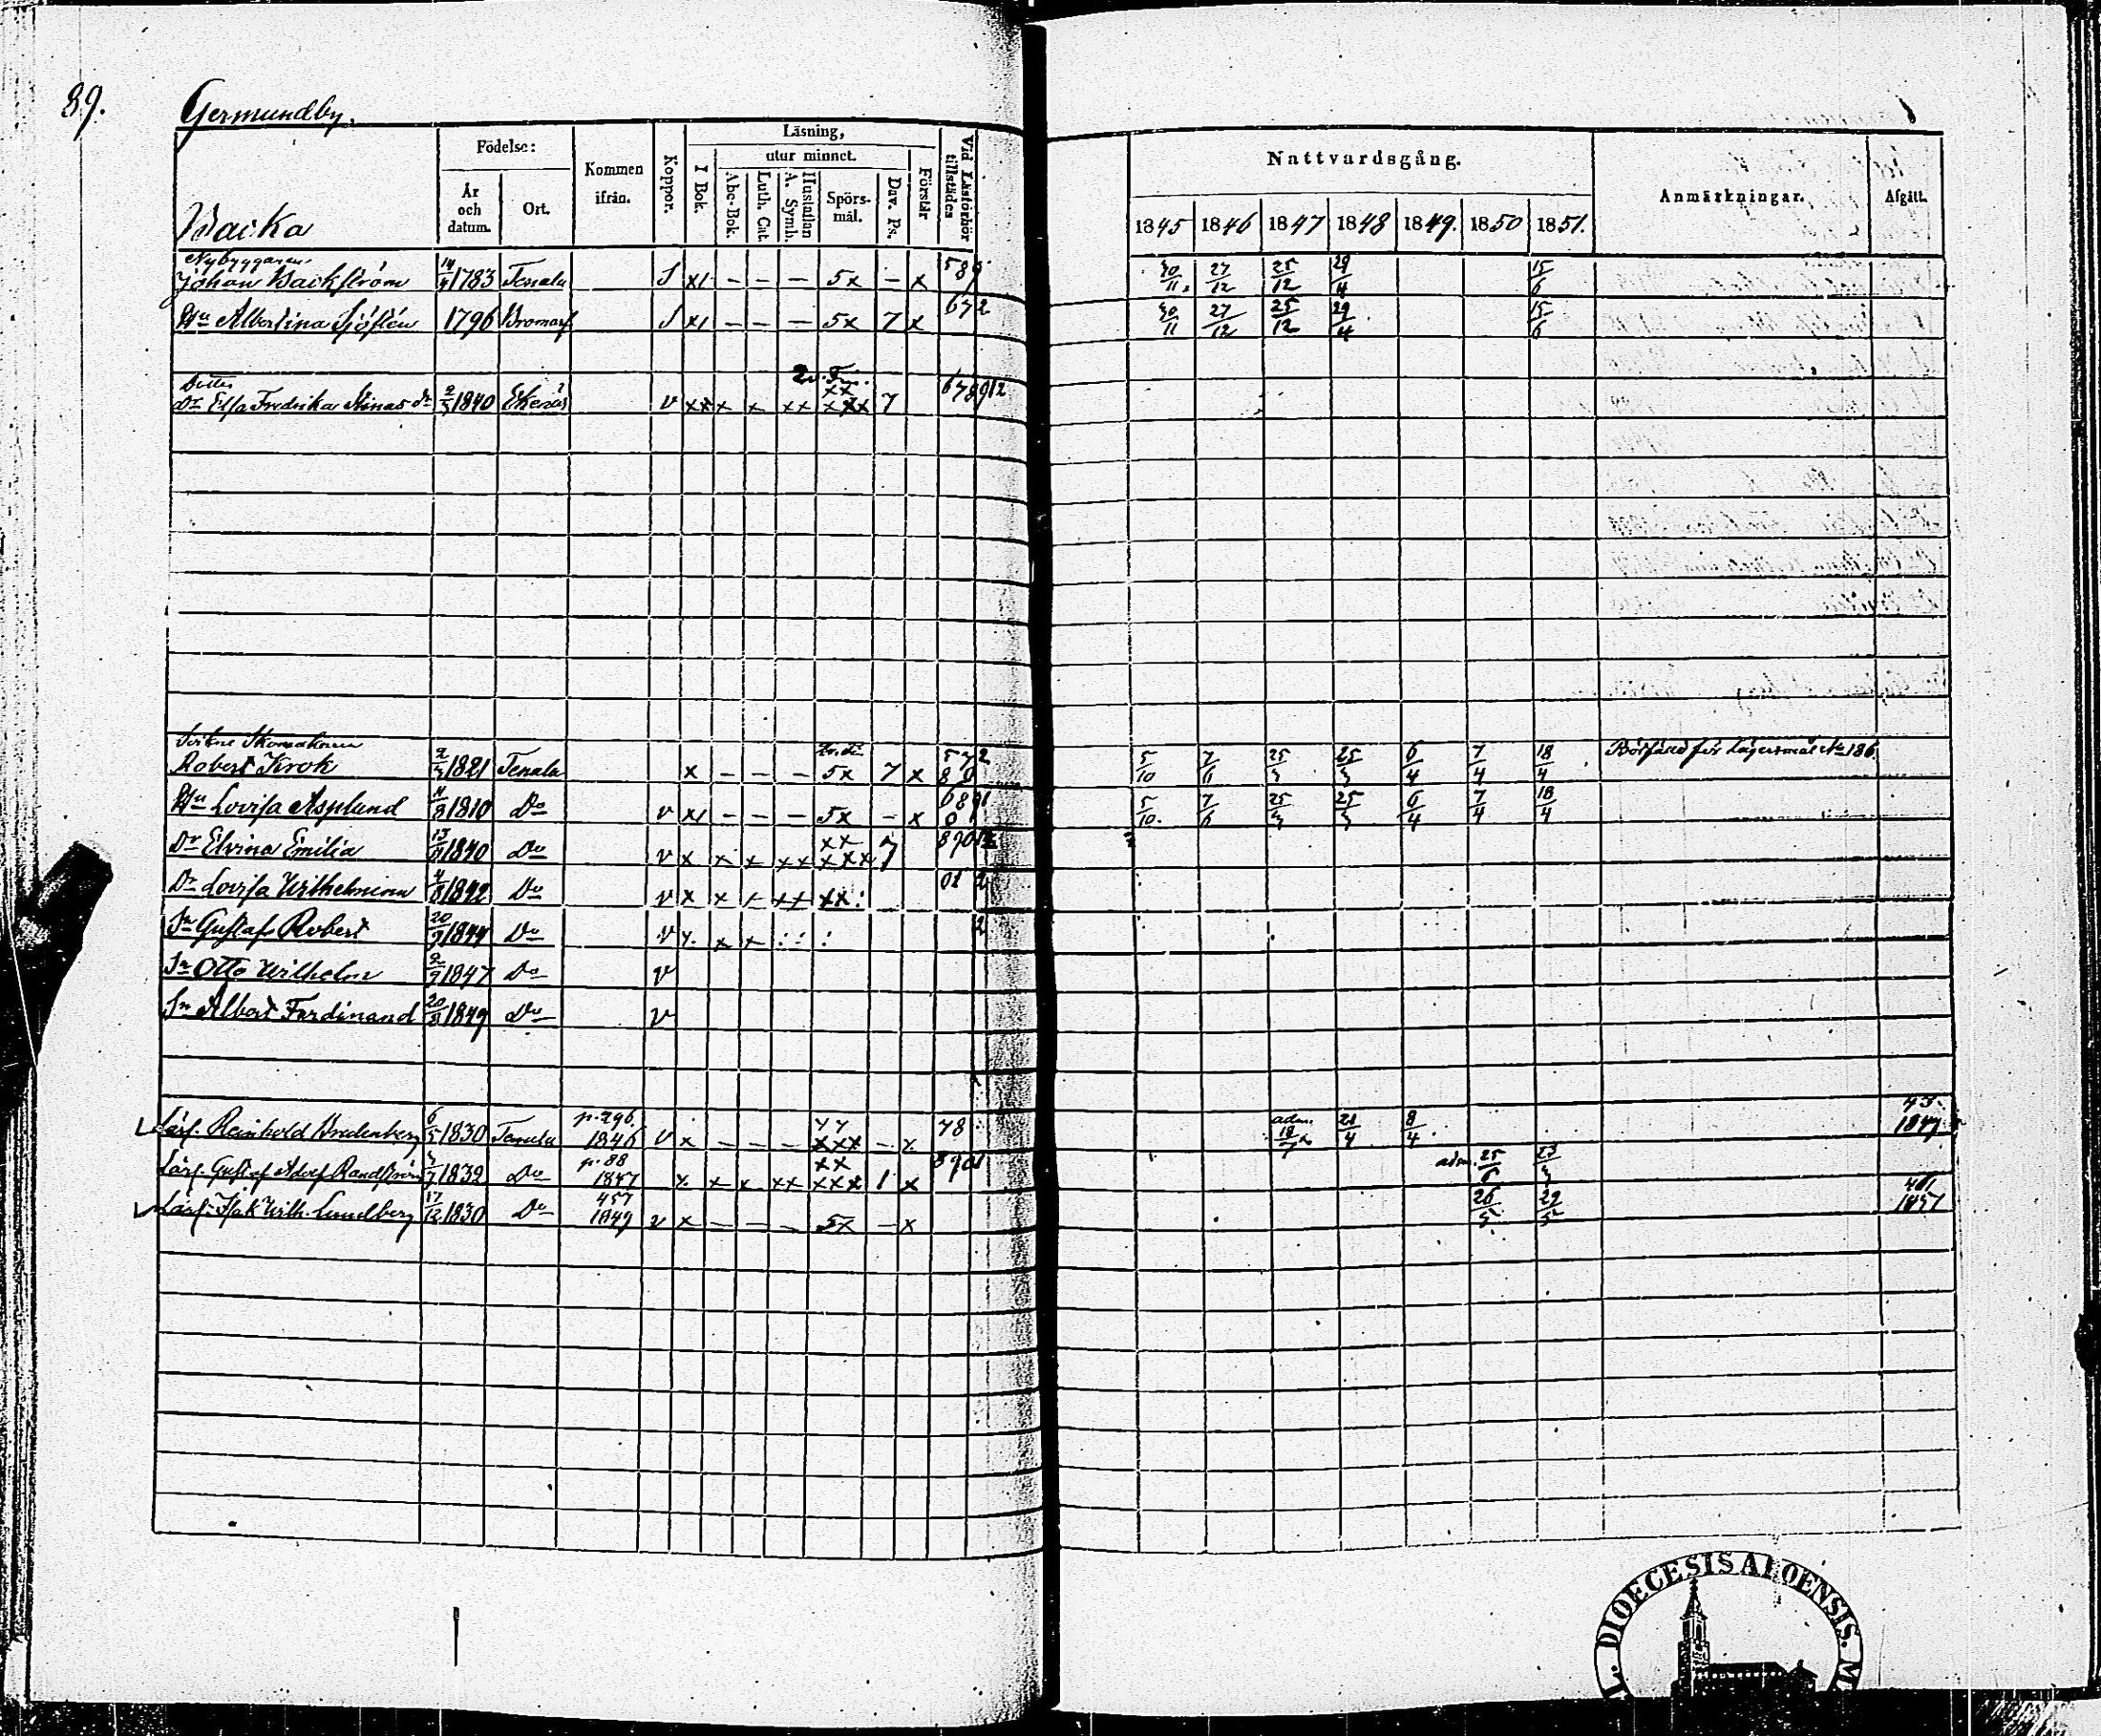 89.
Germundby.
Backa
Födelse:
År och datum.
Ort.
Kommen ifrån.
Koppor.
Läsning,
I Bok.
utur minnet.
Abc-Bok.
Luth. Cat.
Hustaflan A. Symb.
Spörs-mål.
Dav. Ps.
Förstår
Vid Läsförhör tillstädes
Nattvardsgång.
1845 1846 1847 1848 1849. 1850 1851.
Anmärkningar.
Afgått.
Nybyggaren
Johan Backström 14/4 1783 Tenala S x1 – – – 5x – x 589 30/11. 27/12 25/12 29/4 15/6
Hu Albertina Sjöstén 1796 Bromarf S x1 – – – 5x 7 x 672 30/11 27/12 25/12 29/4 15/6
Dr Elsa Fredrika Stinas dr 1840 Ekenäs v xx x x xx xx xxx 7 678912
Skomakaren
Robert Krok 2/3 1821 Tenala x – – – 5x 7 x 572 5/10 7/6 25/3 25/3 6/4 7/4 18/4
Hu Lovisa Asplund 4/8 1810 Do v x1 – – – 5x – x 5/10. 7/6 25/3 25/3 6/4 7/4 18/4
Dr Elvina Emilia 13/8 1840 Do v x x x xx xx xxx 7
Dr Lovisa Wilhelmina 4/8 1842 Do v x x x xx xx:
Sn Gustaf Robert 20/9 1844 Do v x. x x : : : 2
Sn Otto Wilhelm 1847 Do v
Sn Albert Ferdinand 20/8 1849 Do v
Lärl. Reinhold Bredenberg 6/5 1830 Tenala p. 296. 1846 v x – – – xxx – x 78 adm. 18/7 21/4 8/4 43. 1849
Lärl. Gustaf Adolf Randström 1832 Do p. 88 1847 x x x xx xx xxx 1 x 8901 adm. 25/6 23/3
Lärl. Isak Wilh. Lundberg 17/12 1830 Do 457 1849 v x – – – 5x – x 26/5 29/5 1851
DIOECESIS ABOENSIS.